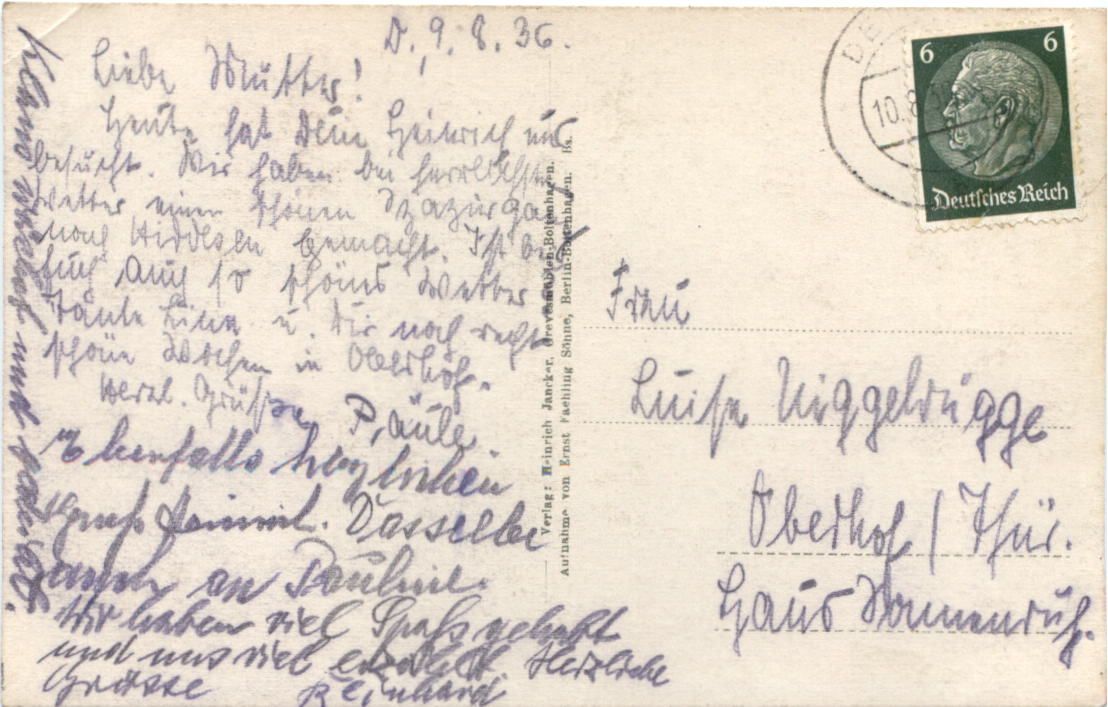 D. 9. 8. 36.
Liebe Mutter!
Heute hat Dein Heinrich uns
besucht. Wir haben bei herrlichstem
Wetter einen schönen Spaziergang
nach Hiddesen gemacht. Ist bei
Euch auch so schönes Wetter
Tante Line u. Dir noch recht
schöne Wochen in Oberhof.
Herzl. Grüsse Paula
Ebenfalls herzlichen
Gruß Heinrich. Dasselbe
auch an Pauline.
Wir haben viel Spaß gehabt
und uns viel erzählt Herzliche
Grüsse Reinhard
und
Verlag: Heinrich Jancker, Grevesmühlen-Boltenhagen.
Aufnahme von Ernst Faehling Söhne, Berlin-Boltenhagen. Bs.
6 6
Deutsches Reich
DE
10.8.3
Frau
Luise Niggebrügge
Oberhof / Thür.
Haus Sonnenruh.